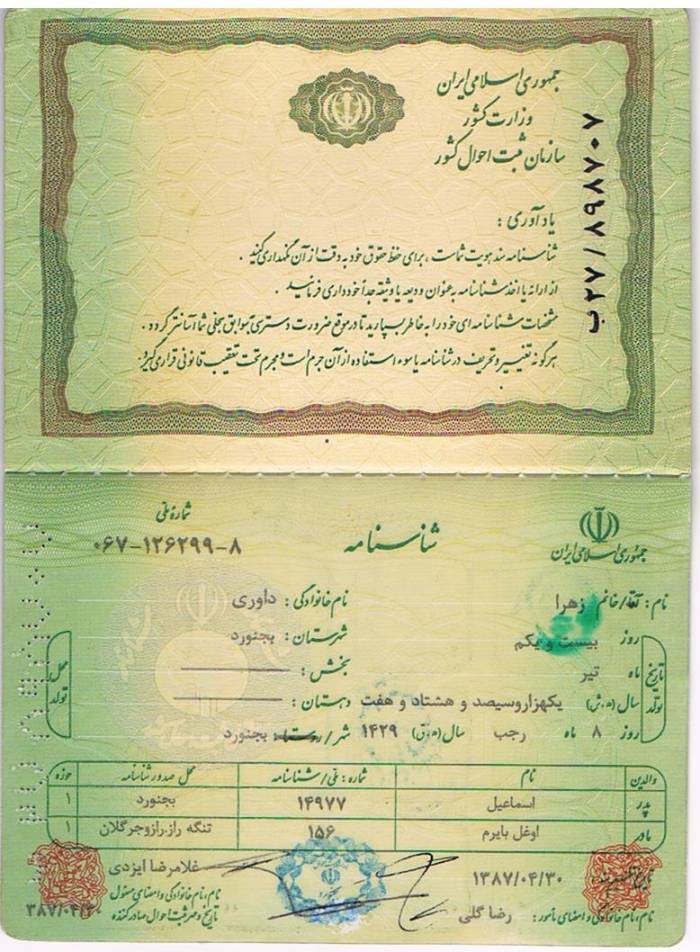 جمهوری اسلامی ایران
وزارت کشور
سازمان ثبت احوال کشور
ب۲۷/۸۹۸۷۰۷
یادآوری :
شناسنامه سند هویت شماست ، برای حفظ حقوق خود به دقت از آن نگهداری کنید .
از ارائه یا اخذ شناسنامه به عنوان ودیعه یا وثیقه جداً خودداری فرمائید .
مشخصات شناسنامه ای خود را به خاطر بسپارید تا در موقع ضرورت دسترسی به سوابق سجلی شما آسانتر گردد .
هر گونه تغییر و تحریف در شناسنامه یا سوء استفاده از آن جرم است و مجرم تحت تعقیب قانونی قرار می گیرد.
جمهوری اسلامی ایران
شناسنامه
شماره ملی
۰۶۷-۱۲۶۲۹۹-۸
نام : آقا/خانم زهرا نام خانوادگی : داوری
تاریخ تولد
روز بیست و یکم شهرستان : بجنورد
ماه تیر بخش :
سال (ه.ش) یکهزاروسیصد و هشتاد و هفت دهستان :
روز ۸ ماه رجب سال (ه.ق) ۱۴۲۹ شهر/روستا : بجنورد
محل تولد
والدین نام شماره : ملی/شناسنامه محل صدور شناسنامه حوزه
پدر اسماعیل ۱۴۹۷۷ بجنورد ۱
مادر اوغل بایرم ۱۵۶ تنگه راز.رازوجرگلان ۱
تاریخ تنظیم سند : ۱۳۸۷/۰۴/۳۰ غلامرضا ایزدی
نام، نام خانوادگی و امضای مأمور : رضا گلی
نام، نام خانوادگی و امضای مسئول
تاریخ و مهر ثبت احوال صادرکننده
۳۸۷/۰۴/۳۰